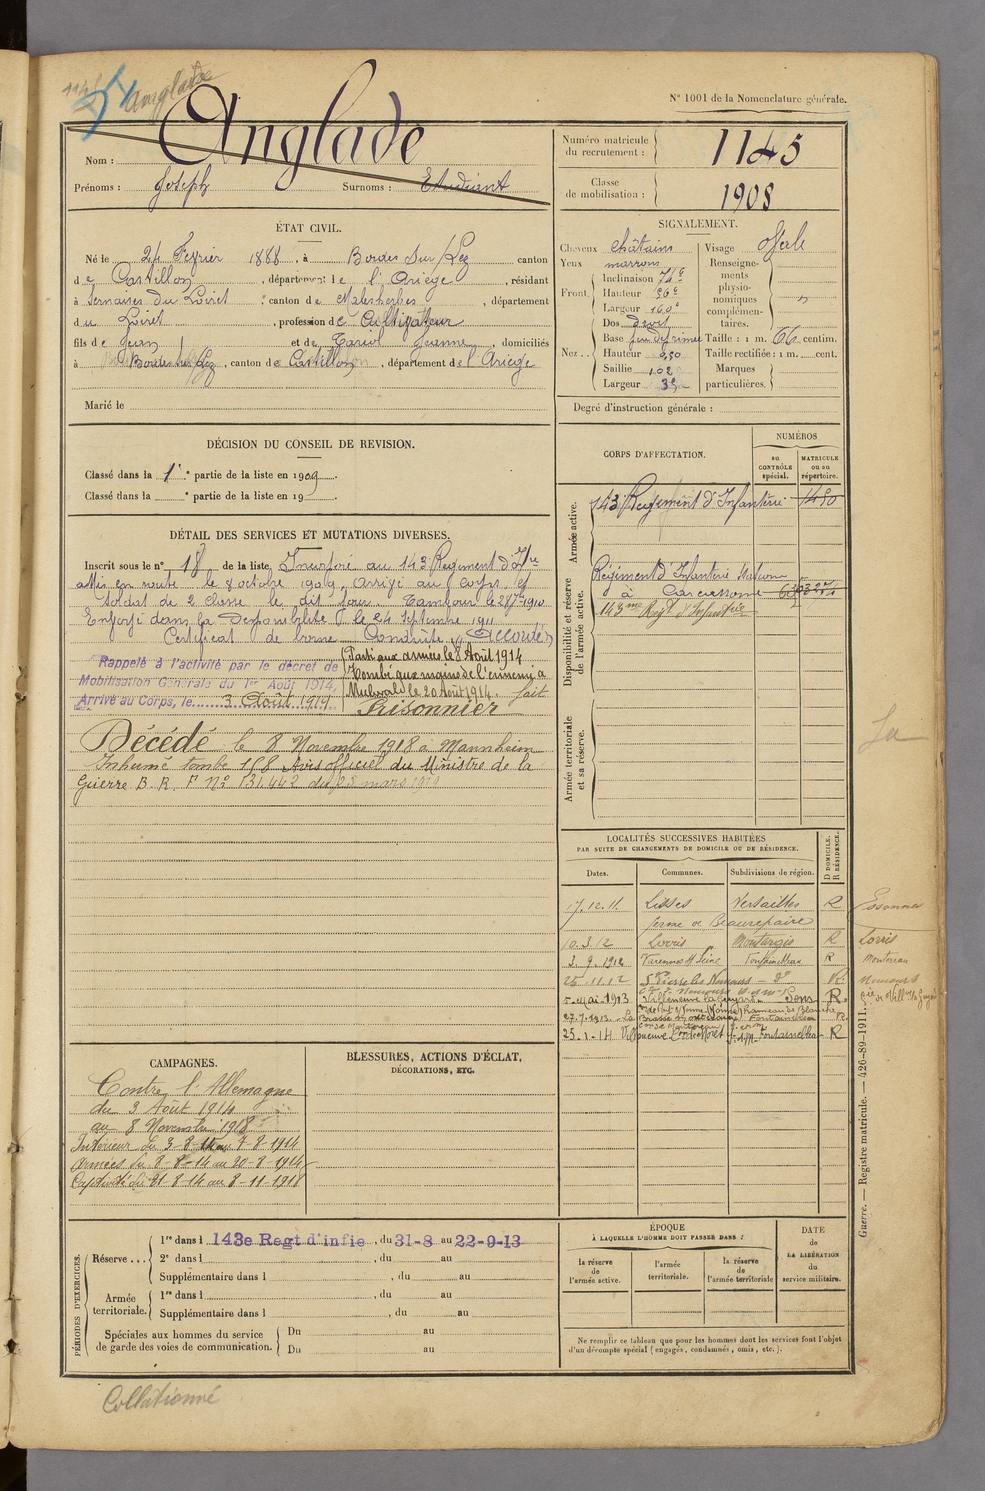 Anglade
N° 1001 de la Nomenclature générale.
Nom : Anglade
Prénoms : Joseph Surnoms : Etudiant
Numéro matricule du recrutement : 1145
Classe de mobilisation : 1908
ÉTAT CIVIL.
Né le 24 Février 1888, à Bordes sur Lez canton
de Castillon, département de l'Ariège, résidant
à Sermaises du Loiret, canton de Malesherbes, département
du Loiret, profession de Cultivateur
fils de Jean et de Jeanne, domiciliés
à Bordes sur Lez, canton de Castillon, département de l'Ariège
Marié le
SIGNALEMENT.
Cheveux châtains
Yeux marrons
Front.
Inclinaison
Hauteur
Largeur
Nez
Dos droit
Base
Hauteur
Saillie
Largeur
Visage Ovale
Renseignements physionomiques complémentaires.
Taille : 1 m. 66 centim.
Taille rectifiée : 1 m. cent.
Marques particulières.
Degré d'instruction générale :
DÉCISION DU CONSEIL DE REVISION.
Classé dans la 1e partie de la liste en 1909.
Classé dans la e partie de la liste en 19
DÉTAIL DES SERVICES ET MUTATIONS DIVERSES.
Inscrit sous le n° 18 de la liste Incorporé au 143e Régiment d'Infie
mis en route le 8 octobre 1909. Arrivé au corps et
soldat de 2e classe le dit jour. Tambour le 1910
Envoyé dans la disponibilité le 24 Septembre 1911
Certificat de bonne Conduite Accordé
Rappelé à l'activité par le décret de
Mobilisation Générale du 1er Août 1914,
Arrivé au Corps, le 3 Août 1914
Parti aux armées le 8 Août 1914
Tombé aux mains de l'ennemi à
le 20 Août 1914. fait
Prisonnier
Décédé le 8 Novembre 1918 à Mannheim
Inhumé tombe 158 Avis officiel du Ministre de la
Guerre B. R. F N° 131.442 du mars 1919
CORPS D'AFFECTATION.
NUMÉROS
au CONTRÔLE spécial.
MATRICULE ou au répertoire.
Armée active.
143e Régiment d'Infanterie
Disponibilité et réserve de l'armée active.
Régiment d'Infanterie Station
à Carcassonne
143me Regt d'Infanterie
Armée territoriale et sa réserve.
LOCALITÉS SUCCESSIVES HABITÉES
PAR SUITE DE CHANGEMENTS DE DOMICILE OU DE RÉSIDENCE.
Dates. Communes. Subdivisions de région. D DOMICILE. R RÉSIDENCE.
17.12.11. Lisses Versailles R Essonnes
ferme de Beaurepaire
10.3.12 Lorris Montargis R Lorris
3.9.1912 Varennes s/ Seine Fontainebleau R Montereau
25.11.12 St Pierre les Nemours - do R. Nemours
5 Mai 1913 Villeneuve la Guyard Sens R.
27.7.1913
25.1.14 Fontainebleau R
CAMPAGNES.
Contre l'Allemagne
du 3 Août 1914
au 8 Novembre 1918
Intérieur du 3-8-14 au 7-8-1914
Armées du 8-8-14 au 20-8-1914
Captivité du 21-8-14 au 8-11-1918
BLESSURES, ACTIONS D'ÉCLAT,
DÉCORATIONS, ETC.
PÉRIODES D'EXERCICES.
Réserve ...
1re dans l 143e Regt d'infie, du 31-8 au 22-9-13
2e dans l , du au
Supplémentaire dans l , du au
Armée territoriale.
1re dans l , du au
Supplémentaire dans l , du au
Spéciales aux hommes du service de garde des voies de communication.
Du au
Du au
ÉPOQUE
À LAQUELLE L'HOMME DOIT PASSER DANS :
la réserve de l'armée active.
l'armée territoriale.
la réserve de l'armée territoriale
DATE de LA LIBÉRATION du service militaire.
Ne remplir ce tableau que pour les hommes dont les services font l'objet
d'un décompte spécial (engagés, condamnés, omis, etc.).
Guerre. — Registre matricule. — 426-89-1911.
Collationné